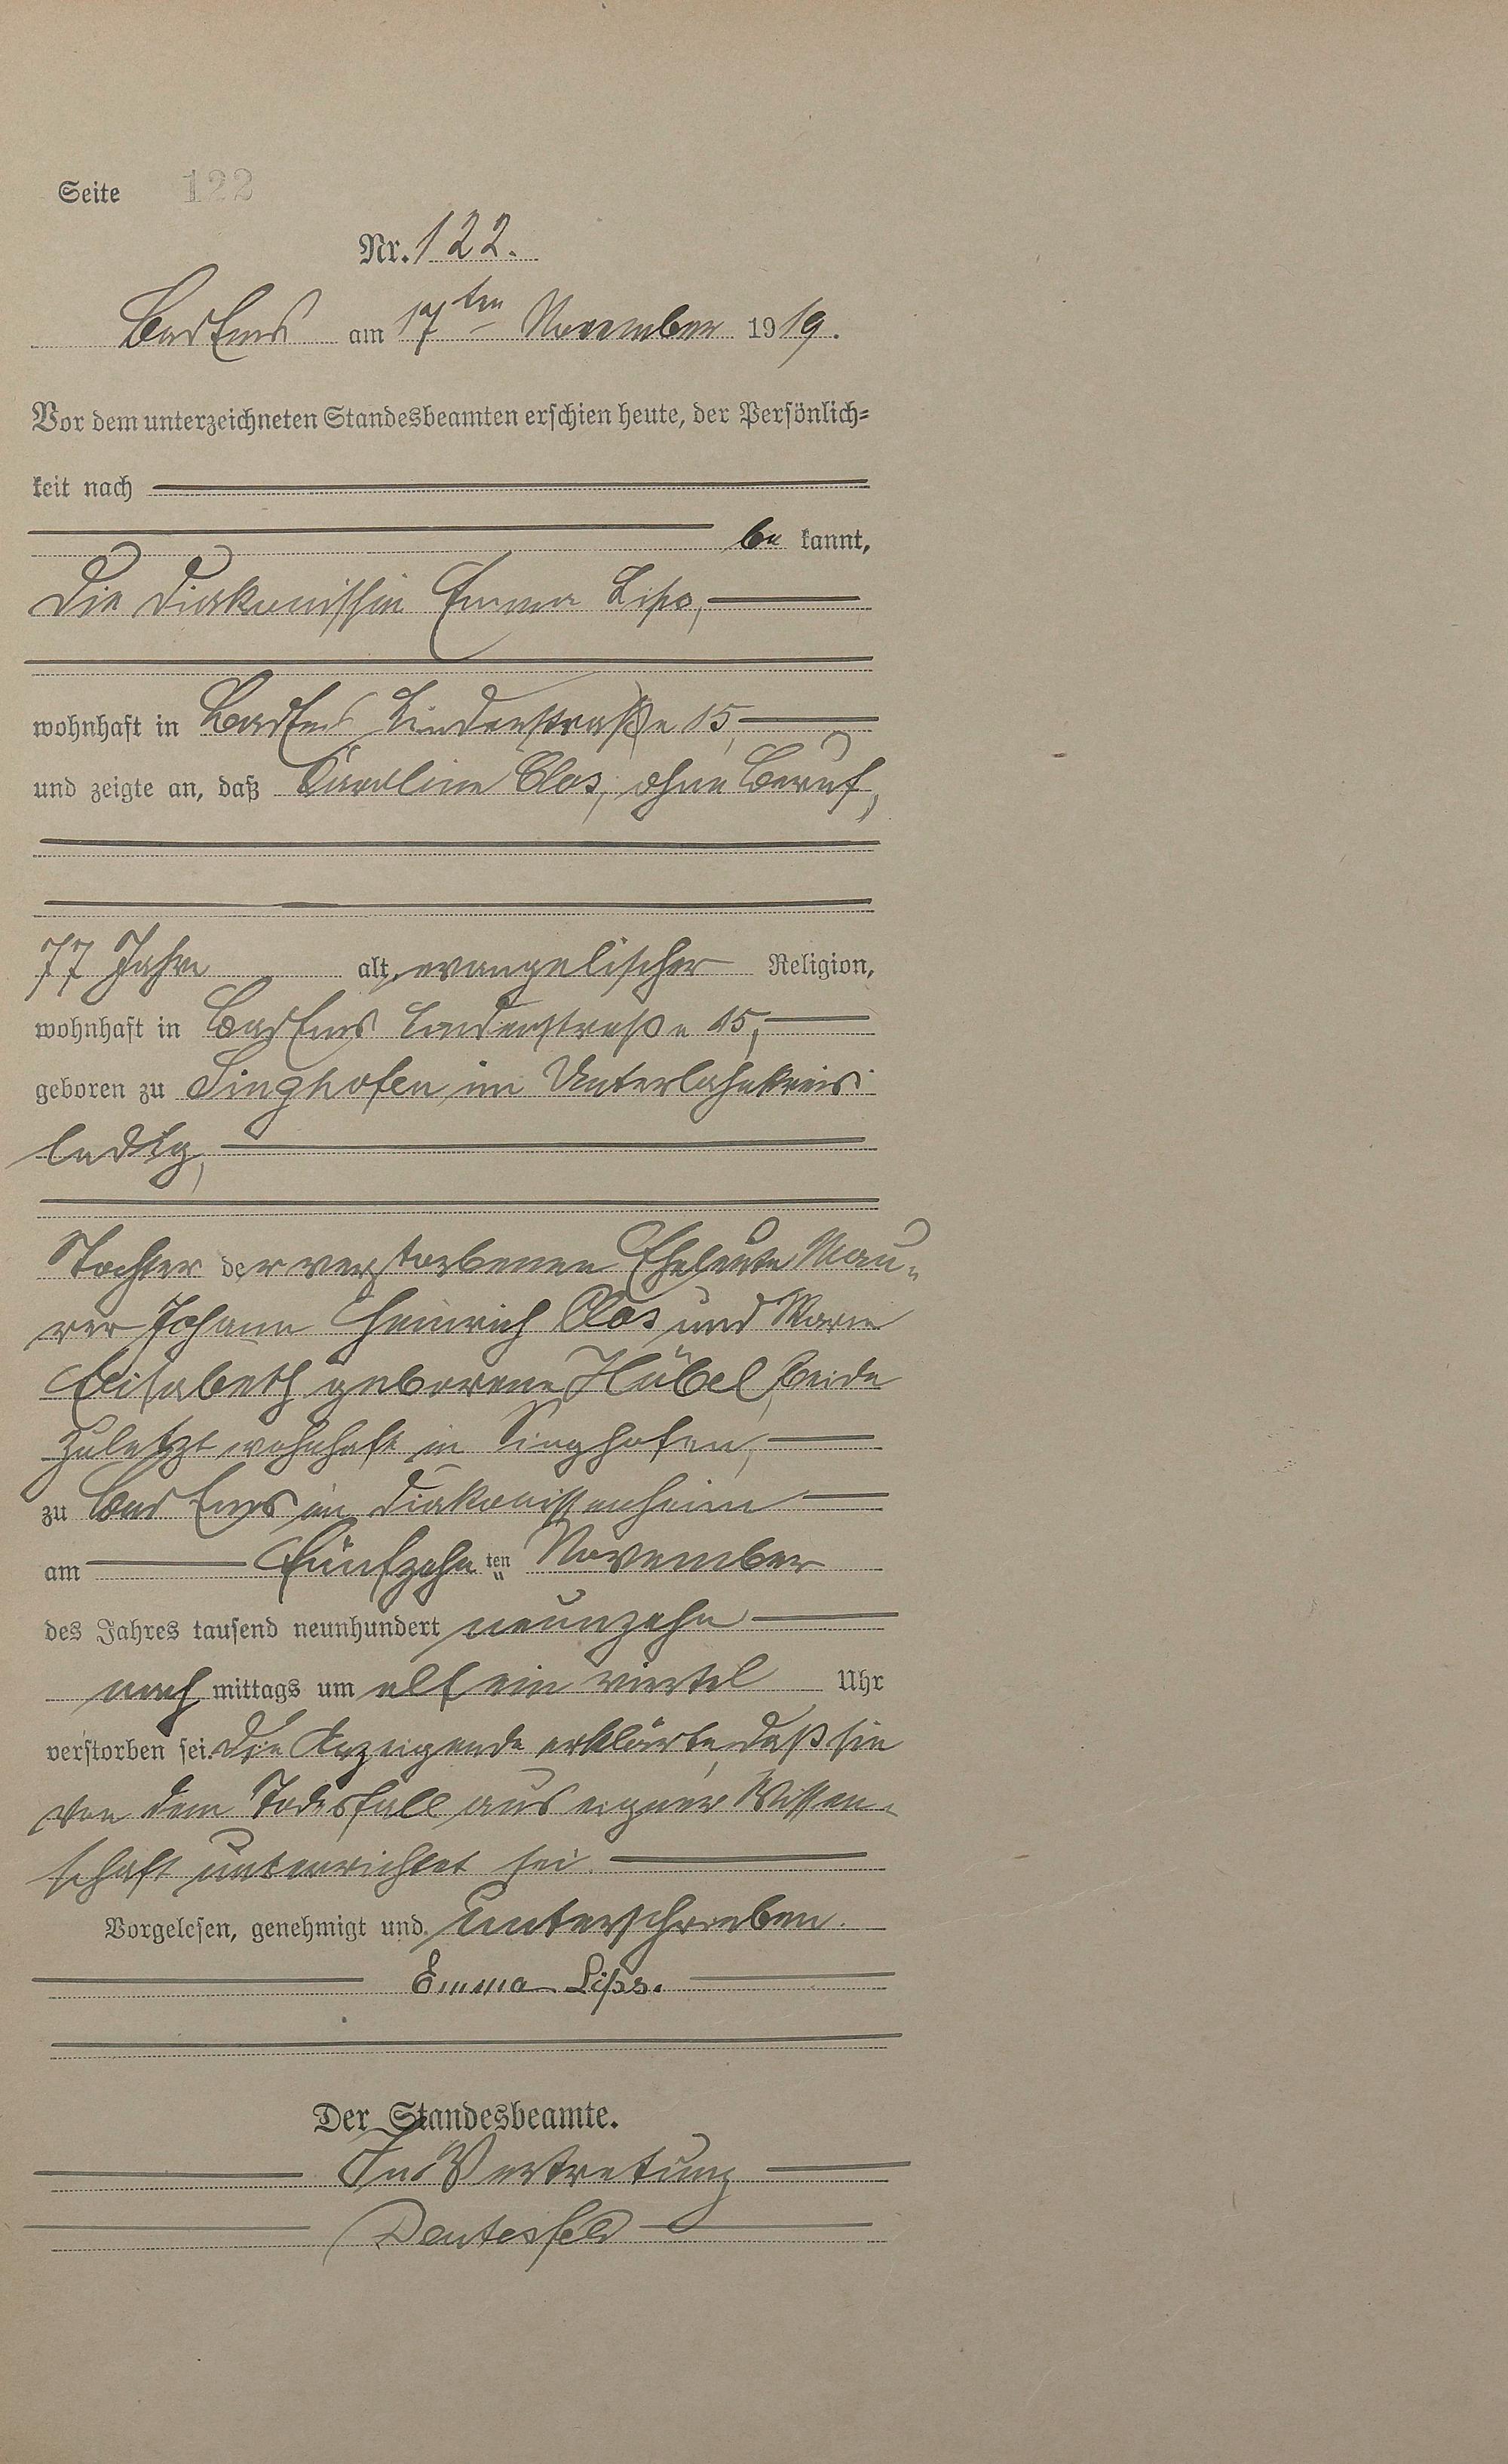 Seite 122
Nr. 122.
Bad Ems am 17ten November 1919.
Vor dem unterzeichneten Standesbeamten erschien heute, der Persönlich-
keit nach
be kannt,
die Diakonissin Emma Lips,
wohnhaft in Bad Ems Lindenstraße 15,
und zeigte an, daß Karoline Clos, ohne Beruf,
77 Jahre alt, evangelischer Religion,
wohnhaft in Bad Ems Lindenstraße 15,
geboren zu Singhofen im Unterlahnkreis
ledig,
Tochter der verstorbenen Eheleute Mau-
rer Johann Heinrich Clos und Marie
Elisabeth geborene Hübel, beide
zuletzt wohnhaft in Singhofen,
zu Bad Ems im Diakonissenheim
am fünfzehnten November
des Jahres tausend neunhundert neunzehn
nach mittags um elf ein viertel Uhr
verstorben sei. Die Anzeigende erklärte, daß sie
von dem Todesfall aus eigener Wissen-
schaft unterrichtet sei.
Vorgelesen, genehmigt und unterschrieben.
Emma Lips.
Der Standesbeamte.
In Vertretung